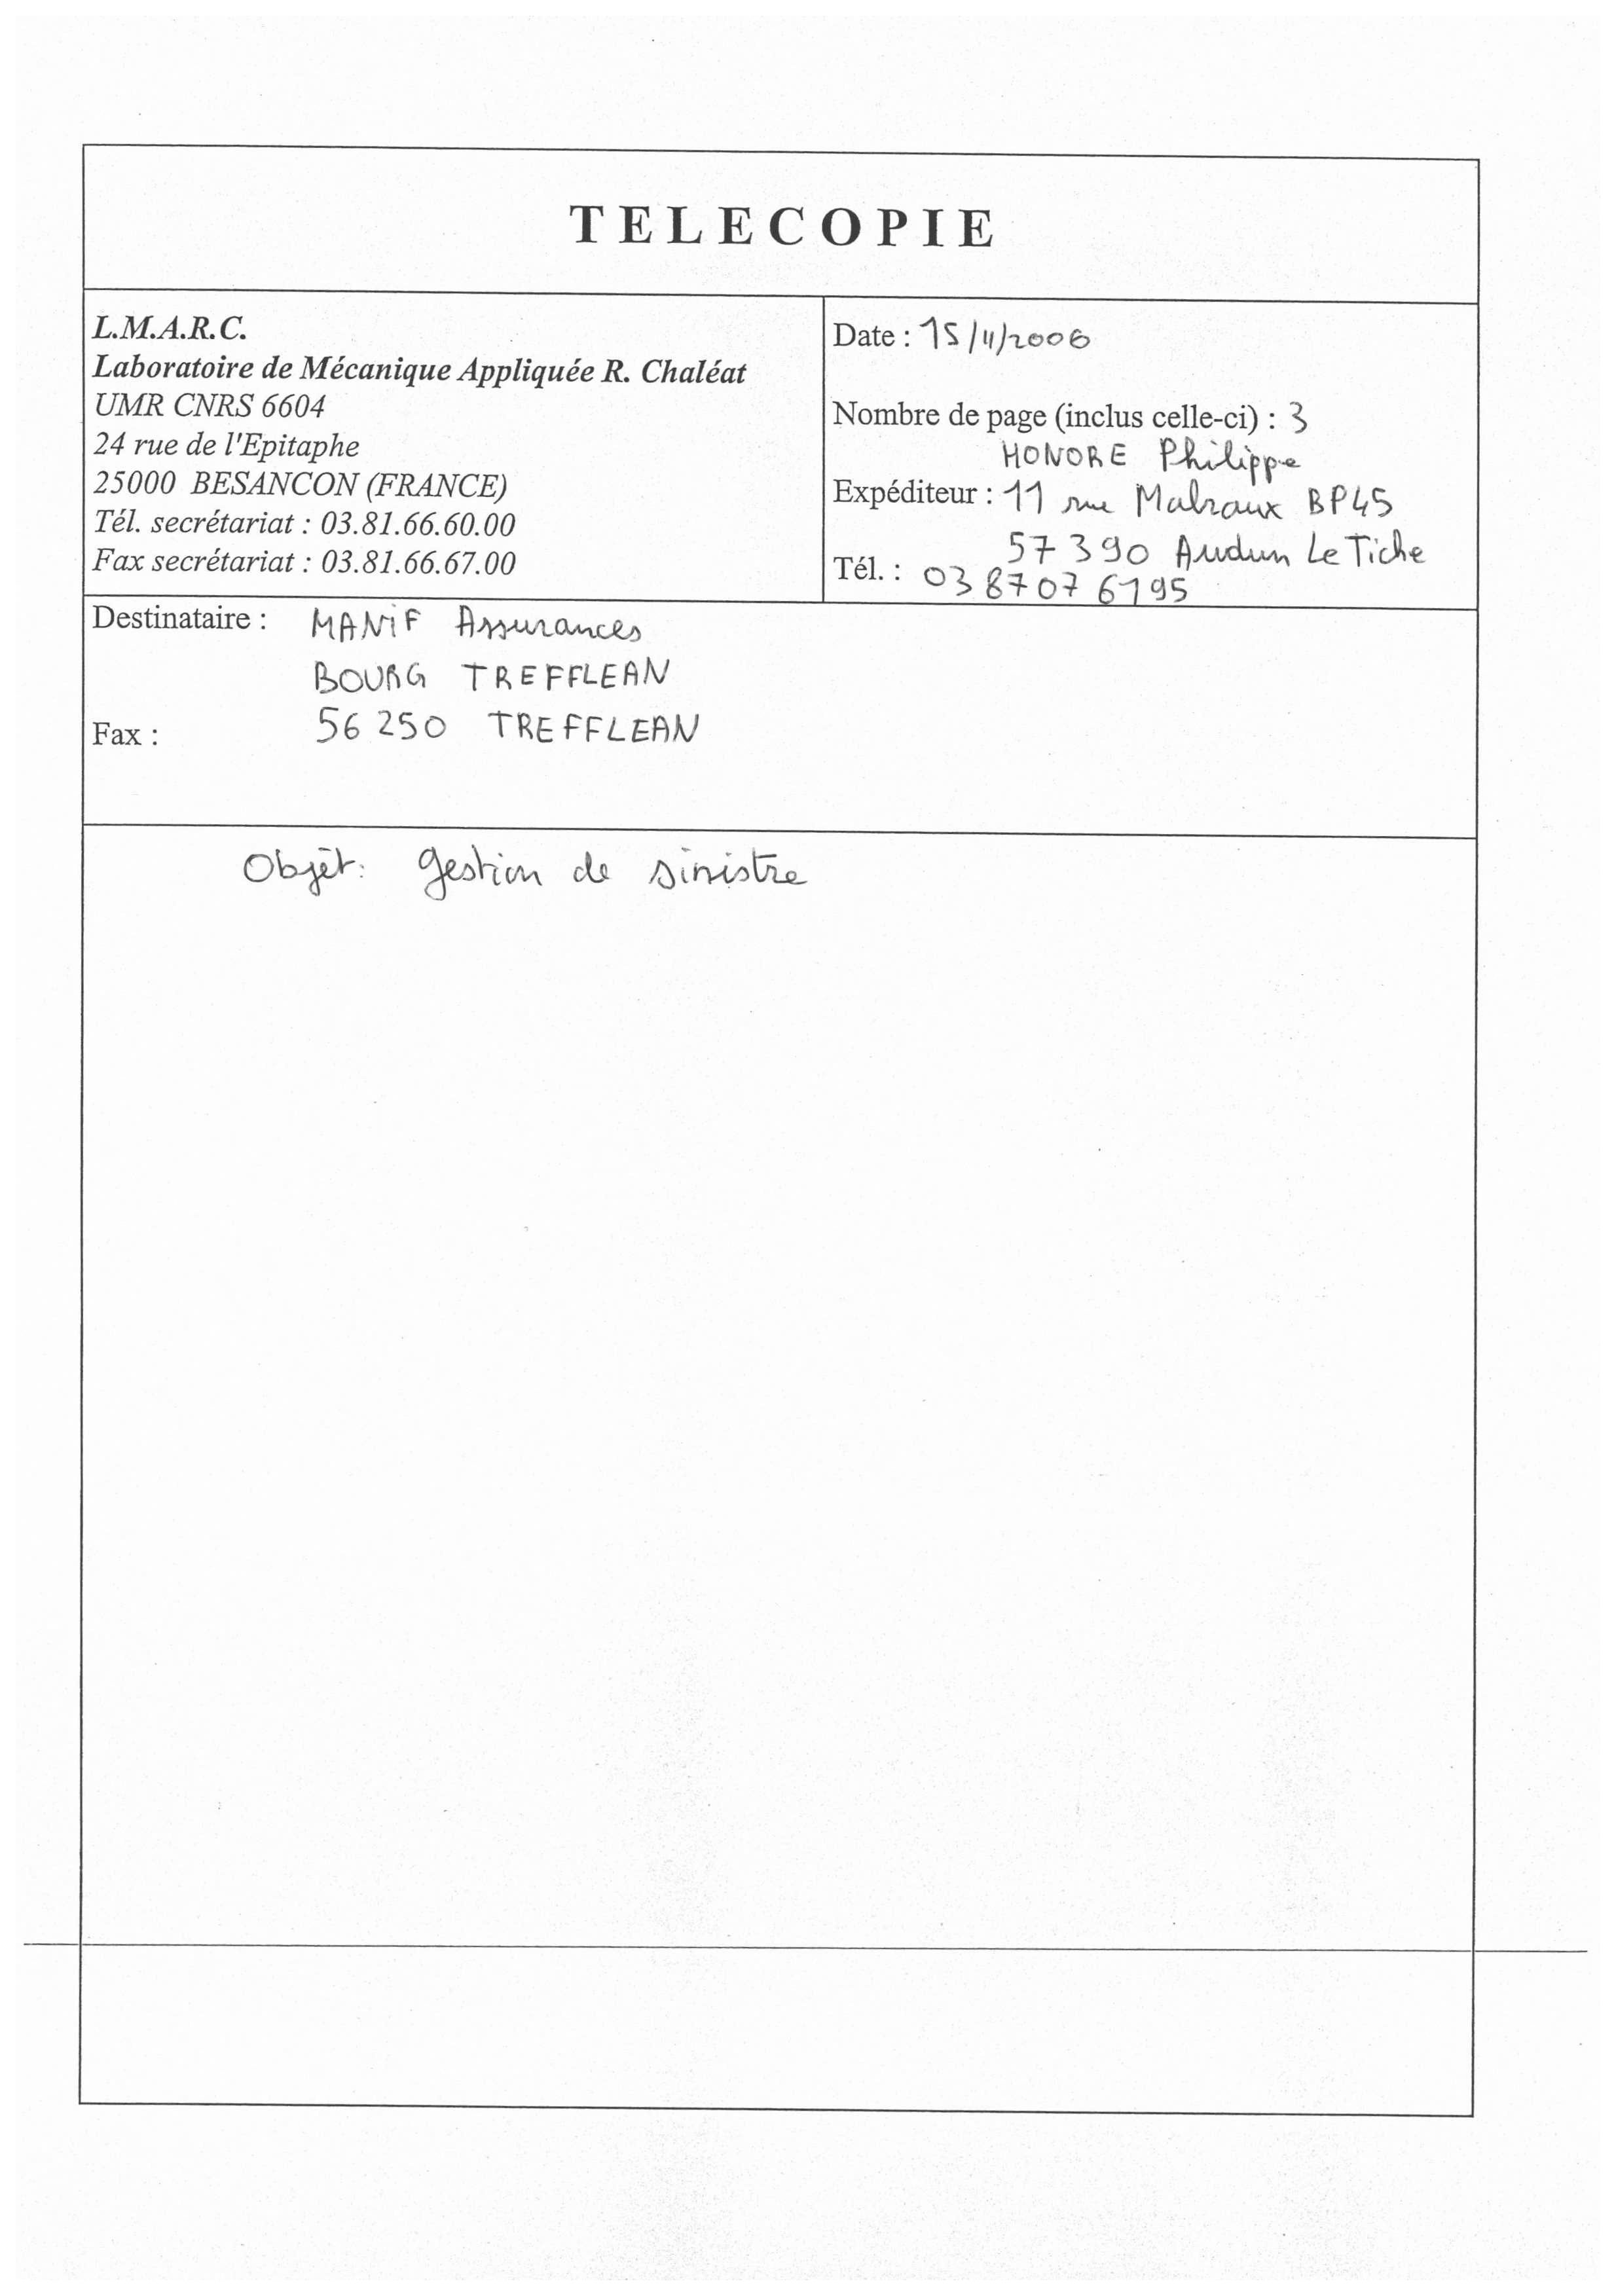 TELECOPIE
L.M.A.R.C.
Laboratoire de Mécanique Appliquée R. Chaléat
UMR CNRS 6604
24 rue de l'Epitaphe
25000 BESANCON (FRANCE)
Tél. secrétariat : 03.81.66.60.00
Fax secrétariat : 03.81.66.67.00
Date : 15/11/2006
Nombre de page (inclus celle-ci) : 3
HONORE Philippe
Expéditeur : 11 rue Malraux BP45
57390 Audun Le Tiche
Tél. : 03 87 07 61 95
Destinataire : MANiF Assurances
BOURG TREFFLEAN
56 250 TREFFLEAN
Fax :
Objêt: gestion de sinistre